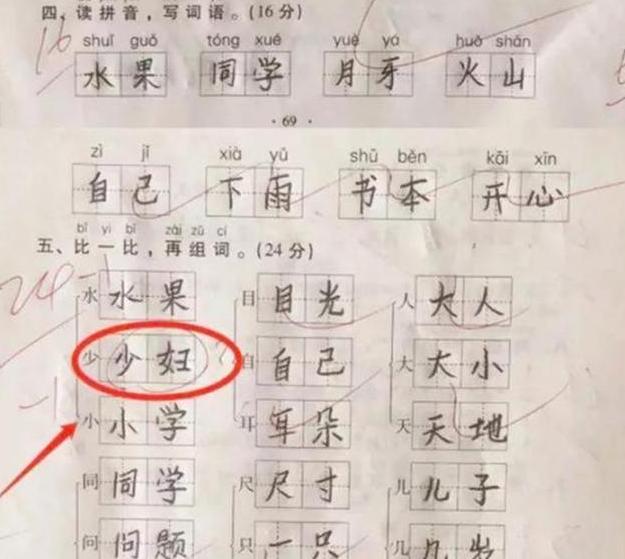 四、读拼音，写词语。(16分)
16
shuǐ guǒ tóng xué yuè yá huǒ shān
水果 同学 月牙 火山
· 69 ·
zì jǐ xià yǔ shū běn kāi xīn
自己 下雨 书本 开心
bǐ yi bǐ zài zǔ cí
五、比一比，再组词。(24分)
24-1
水 水果 目 目光 人 大人
少 少妇 自 自己 大 大小
-1
小 小学 耳 耳朵 天 天地
同 同学 尺 尺寸 儿 儿子
问 问题 只 一只 几 几岁